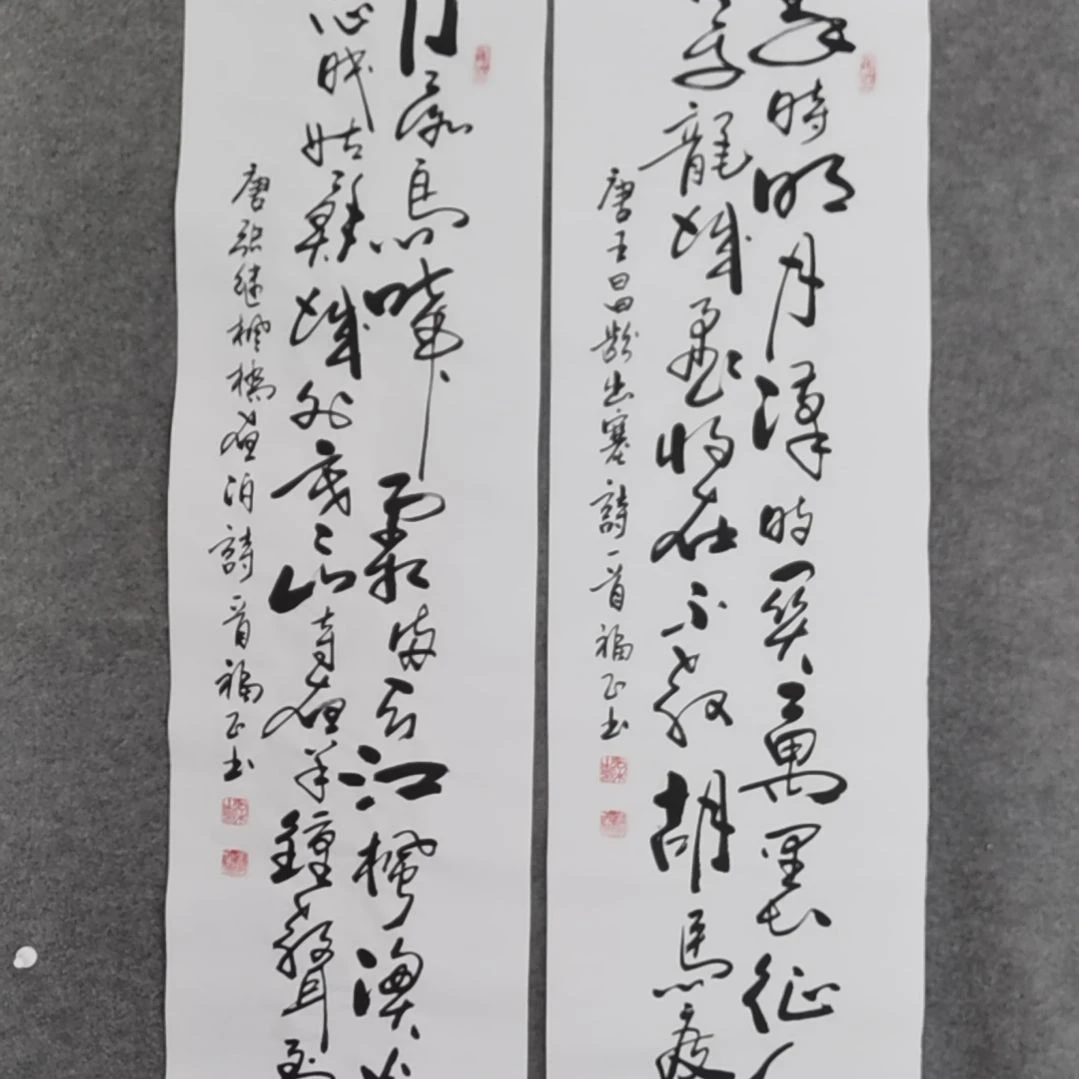 秦時明月漢時関萬里長征
使龍城飛將在不教胡馬度
唐王昌齡出塞詩一首福正书
月落烏啼霜滿天江楓漁火
愁眠姑蘇城外寒山寺夜半鐘聲到
唐張继楓橋夜泊詩一首福正书